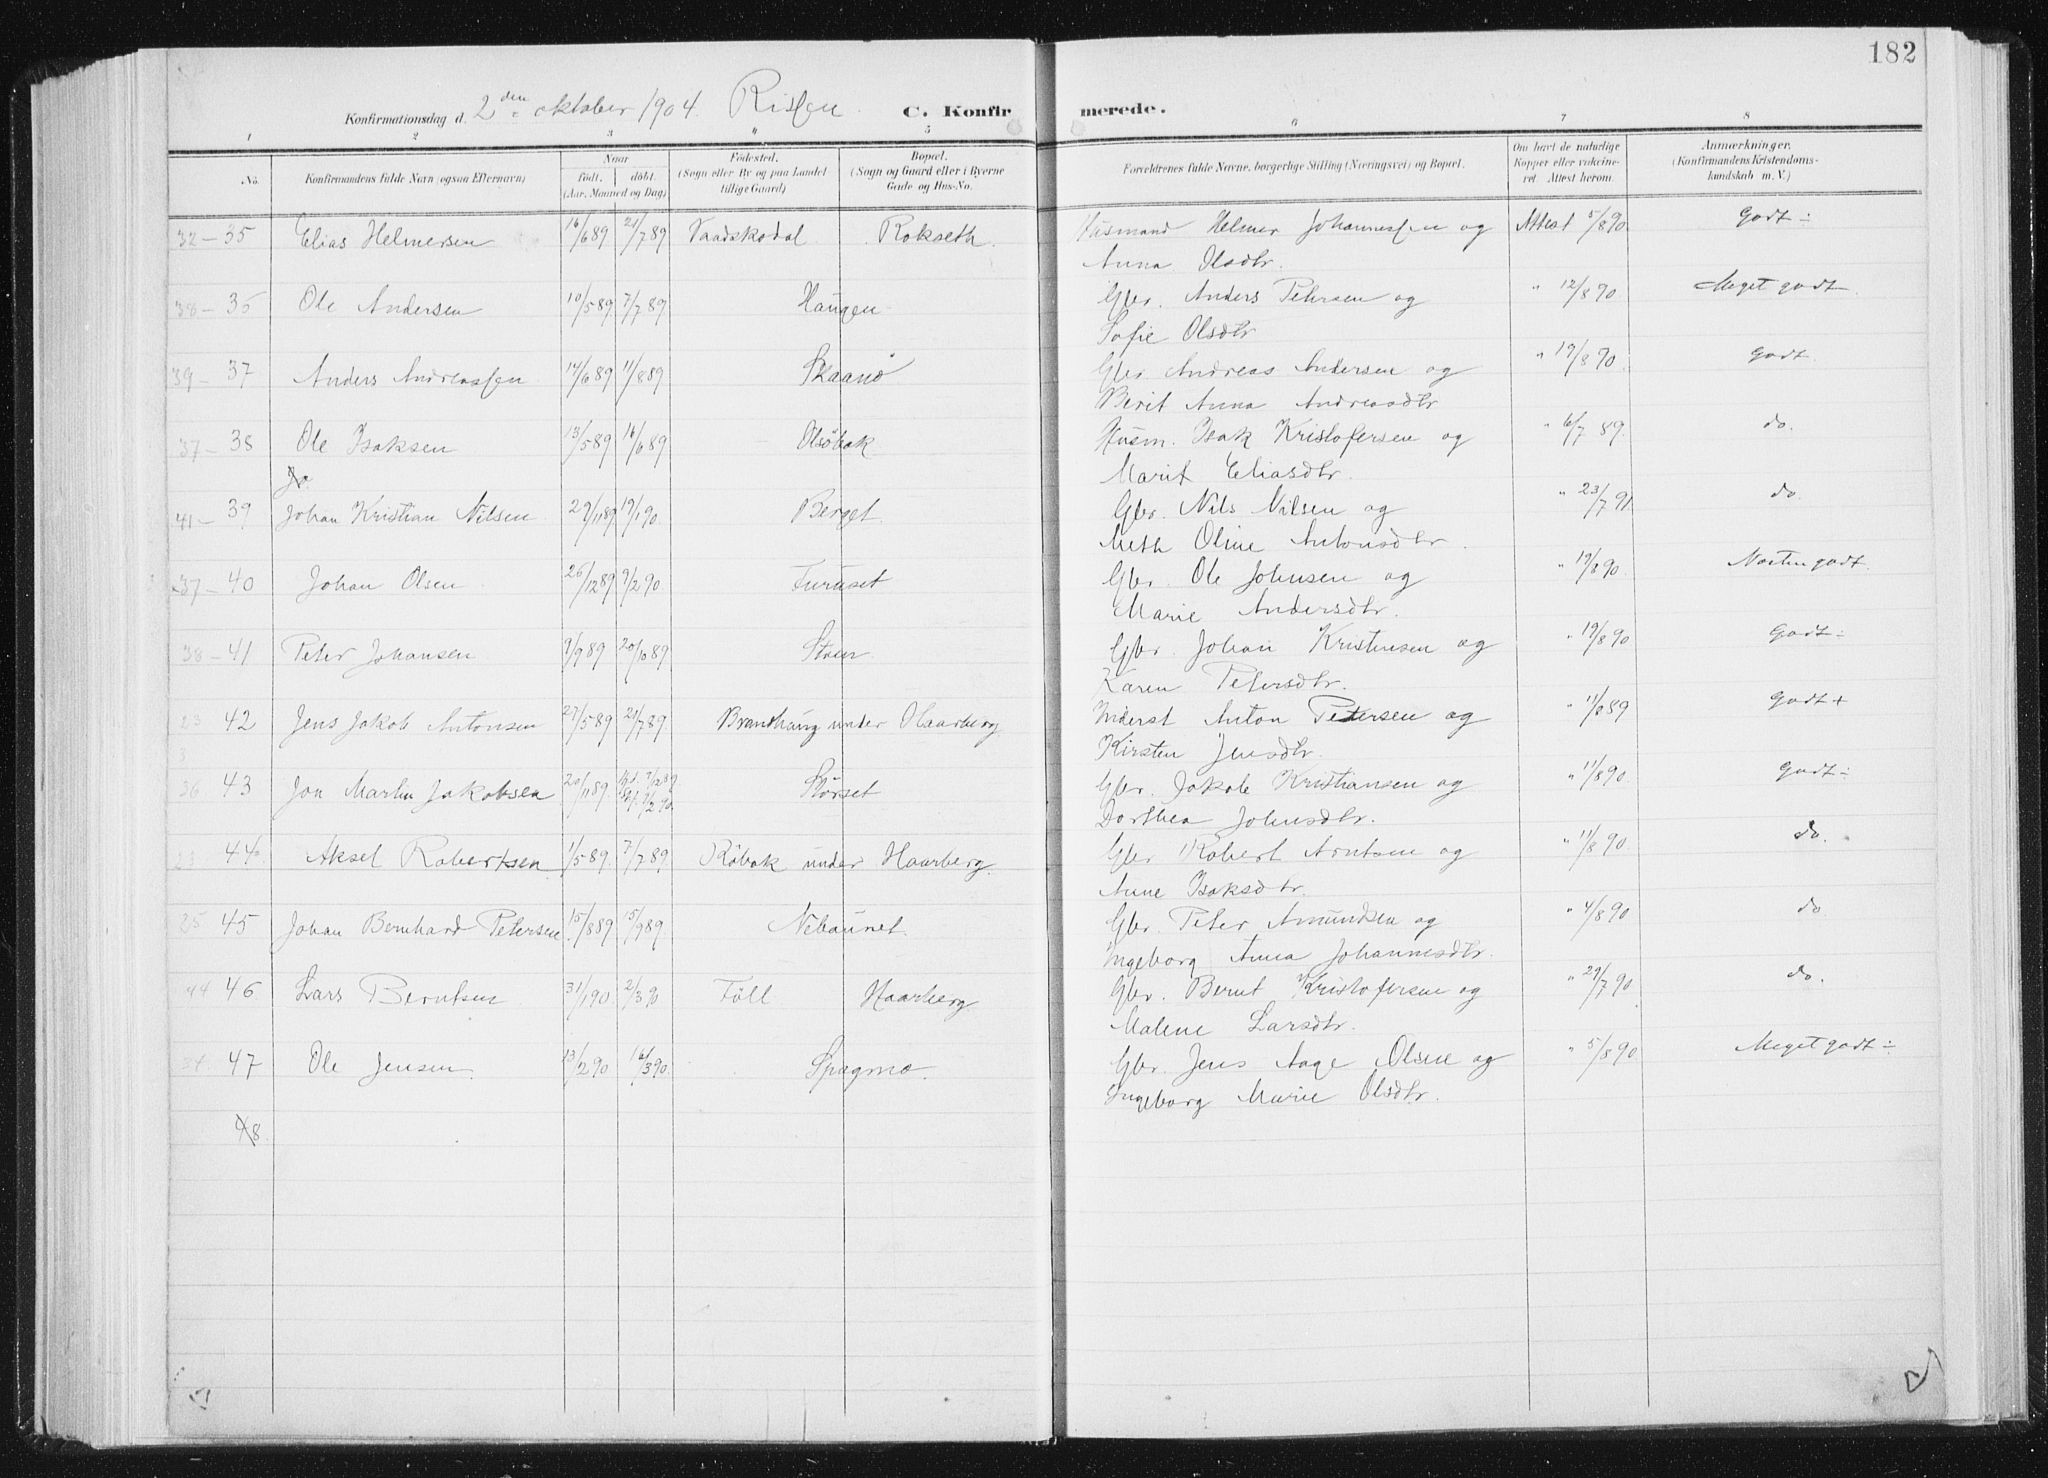 182
Konfirmationsdag d. 2den oktober 1904. Rissen C. Konfirmerede.
1 2 3 " 5 6 7 8
No. Konfirmandens fulde Navn (ogsaa Efternavn) Naar født. døbt. (Aar, Maaned og Dag) Fødested. (Sogn eller By og paa Landet tillige Gaard) Bopæl. (Sogn og Gaard eller i Byerne Gade og Hus-No. Forældrenes fulde Navne, borgerlige Stilling (Næringsvei) og Bopæl. Om havt de naturlige Kopper eller vakcineret. Attest herom. Anmærkninger. (Konfirmandens Kristendomskundskab m. V.)
32 - 35 Elias Helmersen 16/6 89 21/7 89 Rokseth. Husmand Helmer Johannessen og Attest 5/8 90 Godt ÷
Anna Olsdtr.
38 - 36 Ole Andersen 10/5 89 7/7 89 Haugen Gbr. Anders Petersen og " 12/8 90 Meget godt
Sofie Olsdtr
39 - 37 Anders Andreassen 14/6 89 11/8 89 Skaanø Gbr. Andreas Andersen og " 19/8 90 Godt.
Berit Anna Andreasdtr
37 - 38 Ole Isaksen 13/5 89 16/6 89 Olsøbak Husm. Isak Kristofersen og " 6/7 89. do.
Marit Eliasdtr.
Jo
41 - 39 Johan Kristian Nilsen 29/11 89 19/1 90 Berget Gbr. Nils Nilsen og " 23/7 91 do.
Meth Oline Antonsdtr.
37 - 40 Johan Olsen 26/12 89 9/2 90. Furuset Gbr. Ole Johnsen og " 19/8 90. Næsten godt
Marie Andersdtr.
38 - 41 Peter Johansen 9/9 89 20/10 89 Støen Gbr. Johan Kristensen og " 19/8 90 Godt ÷
Karen Petersdtr.
23 42 Jens Jakob Antonsen 27/5 89 21/7 89 Brandhaug under Haarberg Inderst Anton Petersen og " 11/8 89 Godt +
Kirsten Jensdtr.
3
36 43 Jon Martin Jakobsen 20/11 89. Størset Gbr. Jakob Kristiansen og " 11/8 90. Godt ÷
Dorthea Johnsdtr.
23 44 Aksel Robertsen 1/5 89. 7/7 89. Røbak under Haarberg. Gbr Robert Arntsen og " 11/8 90 do.
Anne Isaksdtr.
25 45 Johan Bernhard Petersen 15/8 89 15/9 89. Nebaunet. Gbr. Peter Amundsen og " 4/8 90 do
Ingeborg Anna Johannesdtr.
44 46 Lars Berntsen 31/1 90. 2/3 90 Føll Haarberg Gbr. Bernt Kristofersen og " 29/7 90 do.
Malene Larsdtr.
34 47 Ole Jensen 13/2 90 16/3 90. Spagmo. Gbr. Jens Aage Olsen og " 5/8 90 Meget godt ÷
Ingeborg Marie Olsdtr.
48.